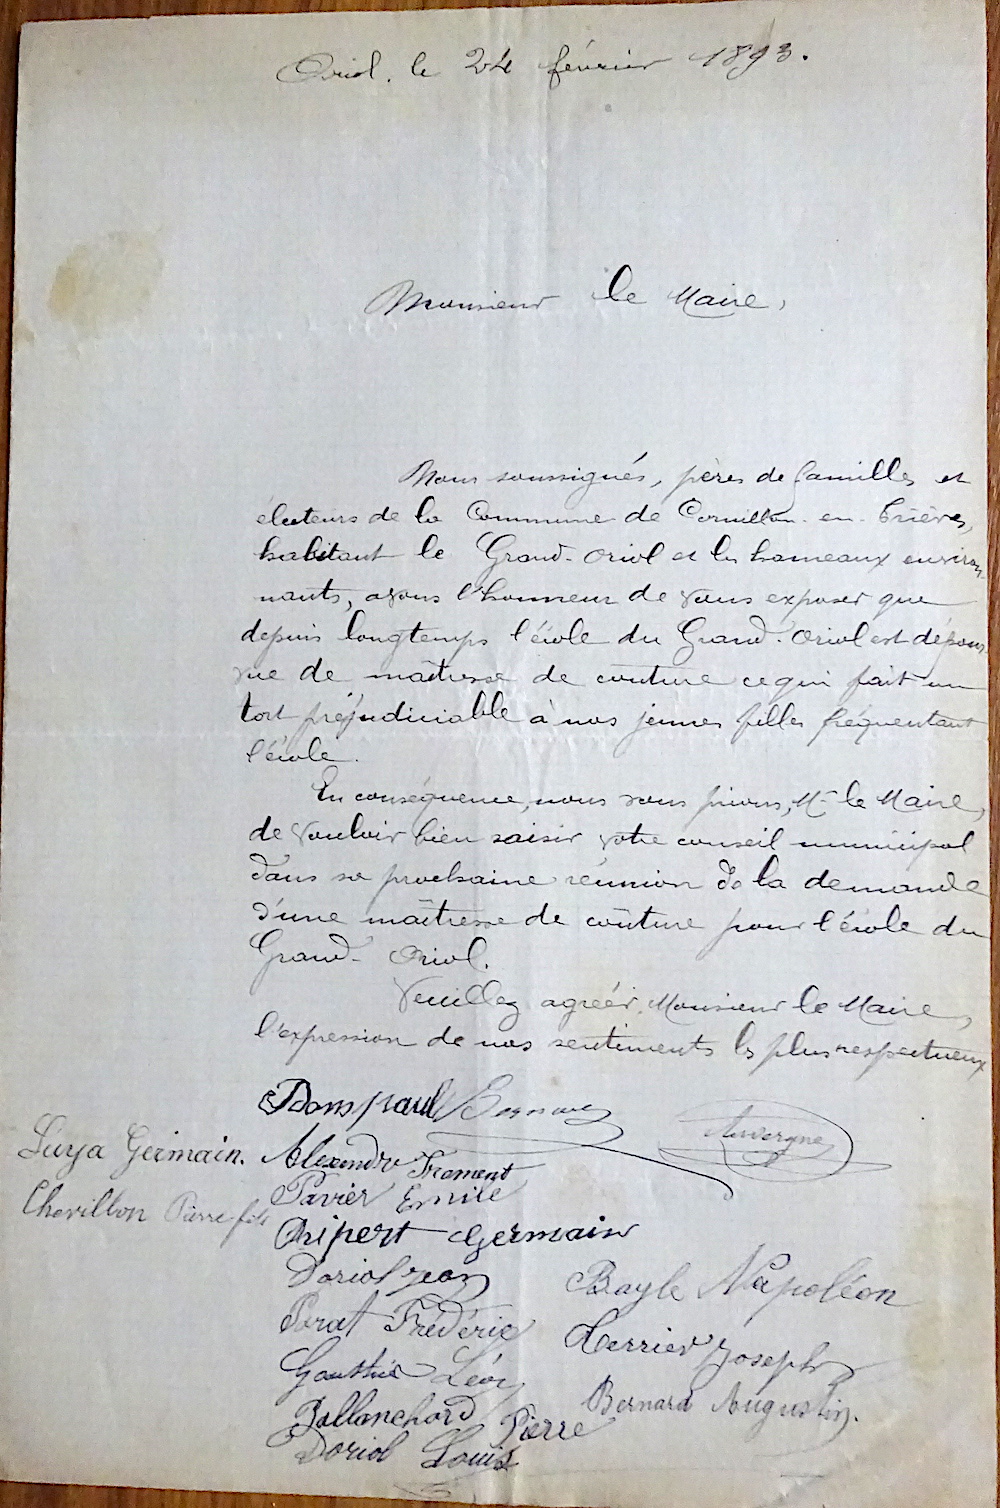 Oriol, le 24 février 1893.
Monsieur le Maire,
Nous soussignés, pères de familles et
électeurs de la Commune de Cornillon-en-Trièves,
habitant le Grand-Oriol et les hameaux environ-
nants, avons l'honneur de vous exposer que
depuis longtemps l'école du Grand-Oriol est dépour-
vue de maîtresse de couture ce qui fait un
tort préjudiciable à nos jeunes filles fréquentant
l'école.
En conséquence, nous vous prions, Mr le Maire,
de vouloir bien saisir votre conseil municipal
dans sa prochaine réunion de la demande
d'une maîtresse de couture pour l'école du
Grand-Oriol.
Veuillez agréer, Monsieur le Maire,
l'expression de nos sentiments les plus respectueux
Auvergne
Luya Germain. Alexandre Froment
Chevillon Pierre fils Pavier Emile
Ripert Germain
Doriol Jean Bayle Napoléon
Frédéric Terrier Joseph
Gauthier Léon Bernard Augustin.
Pierre
Doriol Louis